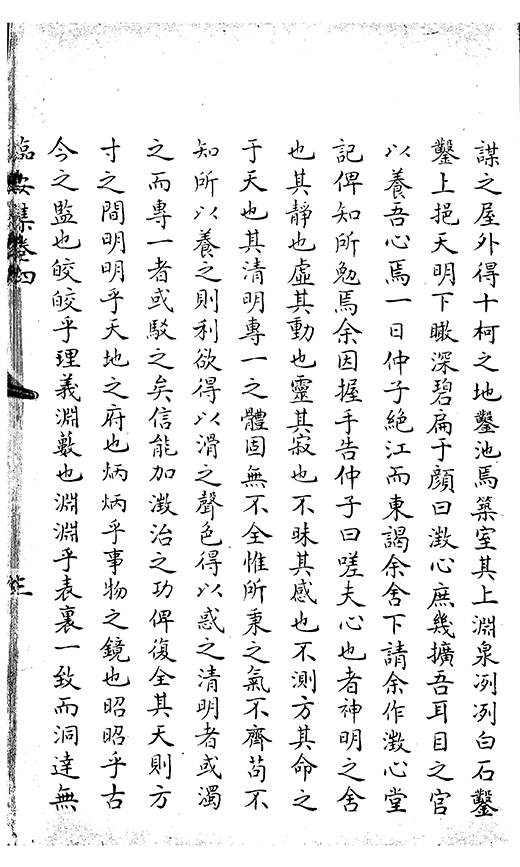 謀之屋外得十柯之地鑿池焉築室其上淵泉冽冽白石鑿
鑿上挹天明下瞰深碧扁于顔曰澂心庶幾擴吾耳目之官
以養吾心焉一日仲子絶江而東謁余舍下請余作澂心堂
記俾知所勉焉余因握手告仲子曰嗟夫心也者神明之舍
也其靜也虛其動也靈其寂也不昧其感也不測方其命之
于天也其清明專一之體固無不全惟所秉之氣不齊苟不
知所以養之則利欲得以滑之聲色得以惑之清明者或濁
之而專一者或駁之矣信能加澂治之功俾復全其天則方
寸之間明明乎天地之府也炳炳乎事物之鏡也昭昭乎古
今之監也皎皎乎理義淵藪也淵淵乎表裏一致而洞達無
臨安集卷四